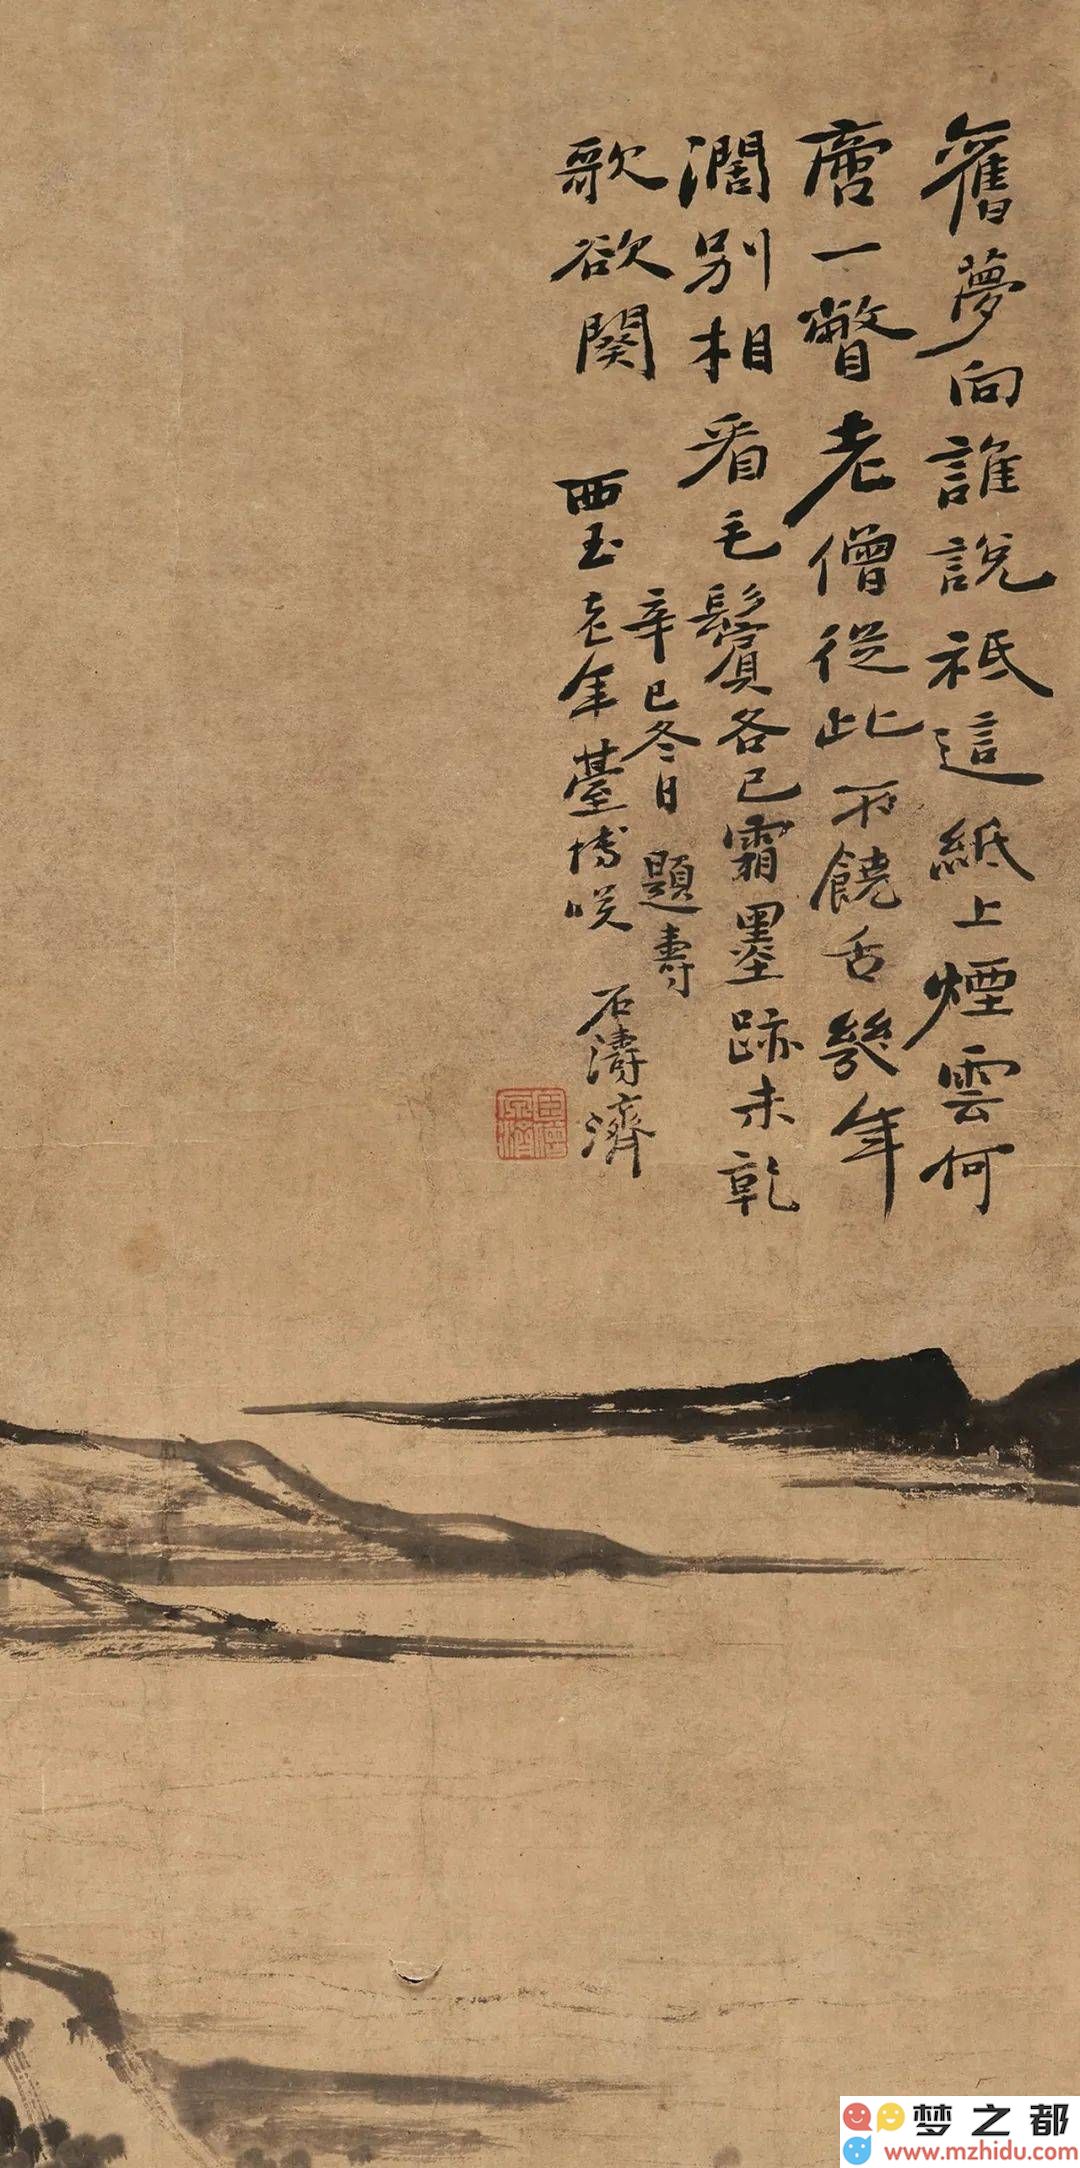 舊夢向誰說祇這紙上煙雲何
㫺一瞥老僧從此不饒舌幾年
濶別相看毛鬢各已霜墨跡未乾
歌欲闋
辛巳冬日題壽
西玉老年臺博咲 石濤濟
臣僧元濟
梦之都
www.mzhidu.com